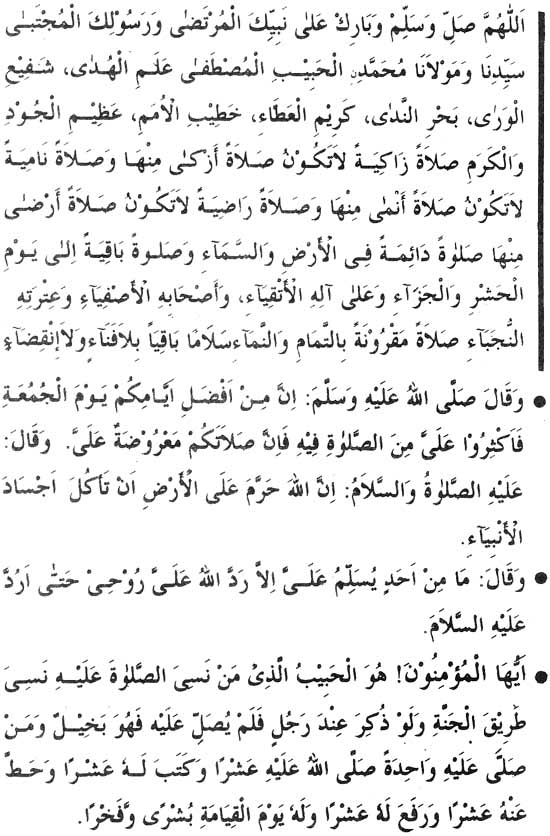 اَللّٰهُمَّ صَلِّ وَسَلِّمْ وَبَارِكْ عَلٰى نَبِيِّكَ الْمُرْتَضٰى وَرَسُوْلِكَ الْمُجْتَبٰى
سَيِّدِنَا وَمَوْلَانَا مُحَمَّدِنِ الْحَبِيْبِ الْمُصْطَفٰى عَلَمِ الْهُدٰى، شَفِيْعِ
الْوَرٰى، بَحْرِ النَّدٰى، كَرِيْمِ الْعَطَاءِ، خَطِيْبِ الْاُمَمِ، عَظِيْمِ الْجُوْدِ
وَالْكَرَمِ صَلَاةً زَاكِيَةً لَاتَكُوْنُ صَلَاةً أَزْكٰى مِنْهَا وَصَلَاةً نَامِيَةً
لَاتَكُوْنُ صَلَاةً أَنْمٰى مِنْهَا وَصَلَاةً رَاضِيَةً لَاتَكُوْنُ صَلَاةً أَرْضٰى
مِنْهَا صَلٰوةً دَائِمَةً فِى الْأَرْضِ وَالسَّمَآءِ وَصَلٰوةً بَاقِيَةً اِلٰى يَوْمِ
الْحَشْرِ وَالْجَزَآءِ وَعَلٰى آلِهِ الْأَتْقِيَآءِ، وَأَصْحَابِهِ الْأَصْفِيَآءِ وَعِتْرَتِهِ
النُّجَبَآءِ صَلَاةً مَقْرُوْنَةً بِالتَّمَامِ وَالنَّمَآءِ سَلَامًا بَاقِيًا بِلَافَنَآءٍ وَلَاإِنْقِضَآءٍ
● وَقَالَ صَلَّى اللهُ عَلَيْهِ وَسَلَّمَ: اِنَّ مِنْ اَفْضَلِ اَيَّامِكُمْ يَوْمَ الْجُمُعَةِ
فَاَكْثِرُوْا عَلَىَّ مِنَ الصَّلٰوةِ فِيْهِ فَاِنَّ صَلَاتَكُمْ مَعْرُوْضَةٌ عَلَىَّ. وَقَالَ:
عَلَيْهِ الصَّلٰوةُ وَالسَّلَامُ: اِنَّ اللهَ حَرَّمَ عَلَى الْأَرْضِ اَنْ تَأكُلَ اَجْسَادَ
الْأَنْبِيَآءِ.
● وَقَالَ: مَا مِنْ اَحَدٍ يُسَلِّمُ عَلَىَّ اِلاَّ رَدَّ اللهُ عَلَىَّ رُوْحِىْ حَتّٰى اَرُدَّ
عَلَيْهِ السَّلَامَ.
● اَيُّهَا الْمُؤْمِنُوْنَ! هُوَ الْحَبِيْبُ الَّذِىْ مَنْ نَسِىَ الصَّلٰوةَ عَلَيْهِ نَسِىَ
طَرِيْقَ الْجَنَّةِ وَلَوْ ذُكِرَ عِنْدَ رَجُلٍ فَلَمْ يُصَلِّ عَلَيْهِ فَهُوَ بَخِيْلٌ وَمَنْ
صَلّٰى عَلَيْهِ وَاحِدَةً صَلَّى اللهُ عَلَيْهِ عَشْرًا وَكَتَبَ لَهٗ عَشْرًا وَحَطَّ
عَنْهُ عَشْرًا وَرَفَعَ لَهٗ عَشْرًا وَلَهٗ يَوْمَ الْقِيَامَةِ بُشْرٰى وَّفَخْرًا.